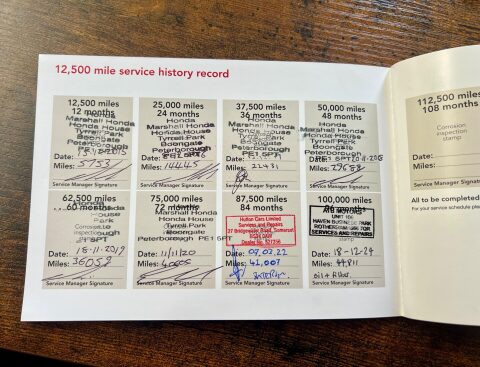 12,500 mile service history record
12,500 miles
12 months
Honda
Marshall Honda
Honda House
Tyrrell Park
Boongate
Peterborough
Date:
Miles: 5753
Service Manager Signature
25,000 miles
24 months
Honda
Marshall Honda
Honda House
Tyrrell Park
Boongate
Peterborough
Date:
Miles: 14445
Service Manager Signature
37,500 miles
36 months
Honda
Marshall Honda
Honda House
Tyrrell Park
Boongate
Peterborough
PE1 5PT
Date:
Miles: 22431
Service Manager Signature
50,000 miles
48 months
Honda
Marshall Honda
Honda House
Tyrrell Park
Boongate
Peterborough
Date:
Miles:
Service Manager Signature
62,500 miles
60 months
Honda
House
Park
Corrosion
inspection
5PT
Date: 15-11-2019
Miles: 36052
Service Manager Signature
75,000 miles
72 months
Marshall Honda
Honda House
Tyrrell Park
Boongate
Peterborough PE1 5PT
Date: 11/11/20
Miles:
Service Manager Signature
87,500 miles
84 months
Hutton Cars Limited
Services and Repairs
37 Bridgwater Road, Somerset
Dealer No.
Date: 07.02.22
Miles: 41,007
Service Manager Signature
100,000 miles
96 months
MOTORS
UNIT
HAVEN BUSINESS PARK
FOR
SERVICES AND REPAIRS
stamp
Date: 18-12-24
Miles: 44,811
oil + filter.
Service Manager Signature
112,500 miles
108 months
Corrosion
inspection
stamp
Date:
Miles:
Service Manager Signature
All to be completed
For your service schedule please